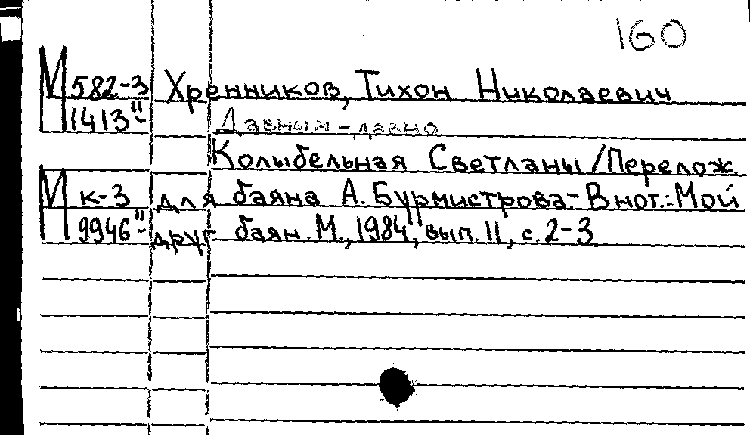 160
М 582-3 Хренников, Тихон Николаевич
1413" Давным-давно
Колыбельная Светланы/Перелож.
М к-3 для баяна А. Бурмистрова.- В нот.: Мой
9946" друг баян. М., 1984, вып. 11, с. 2-3